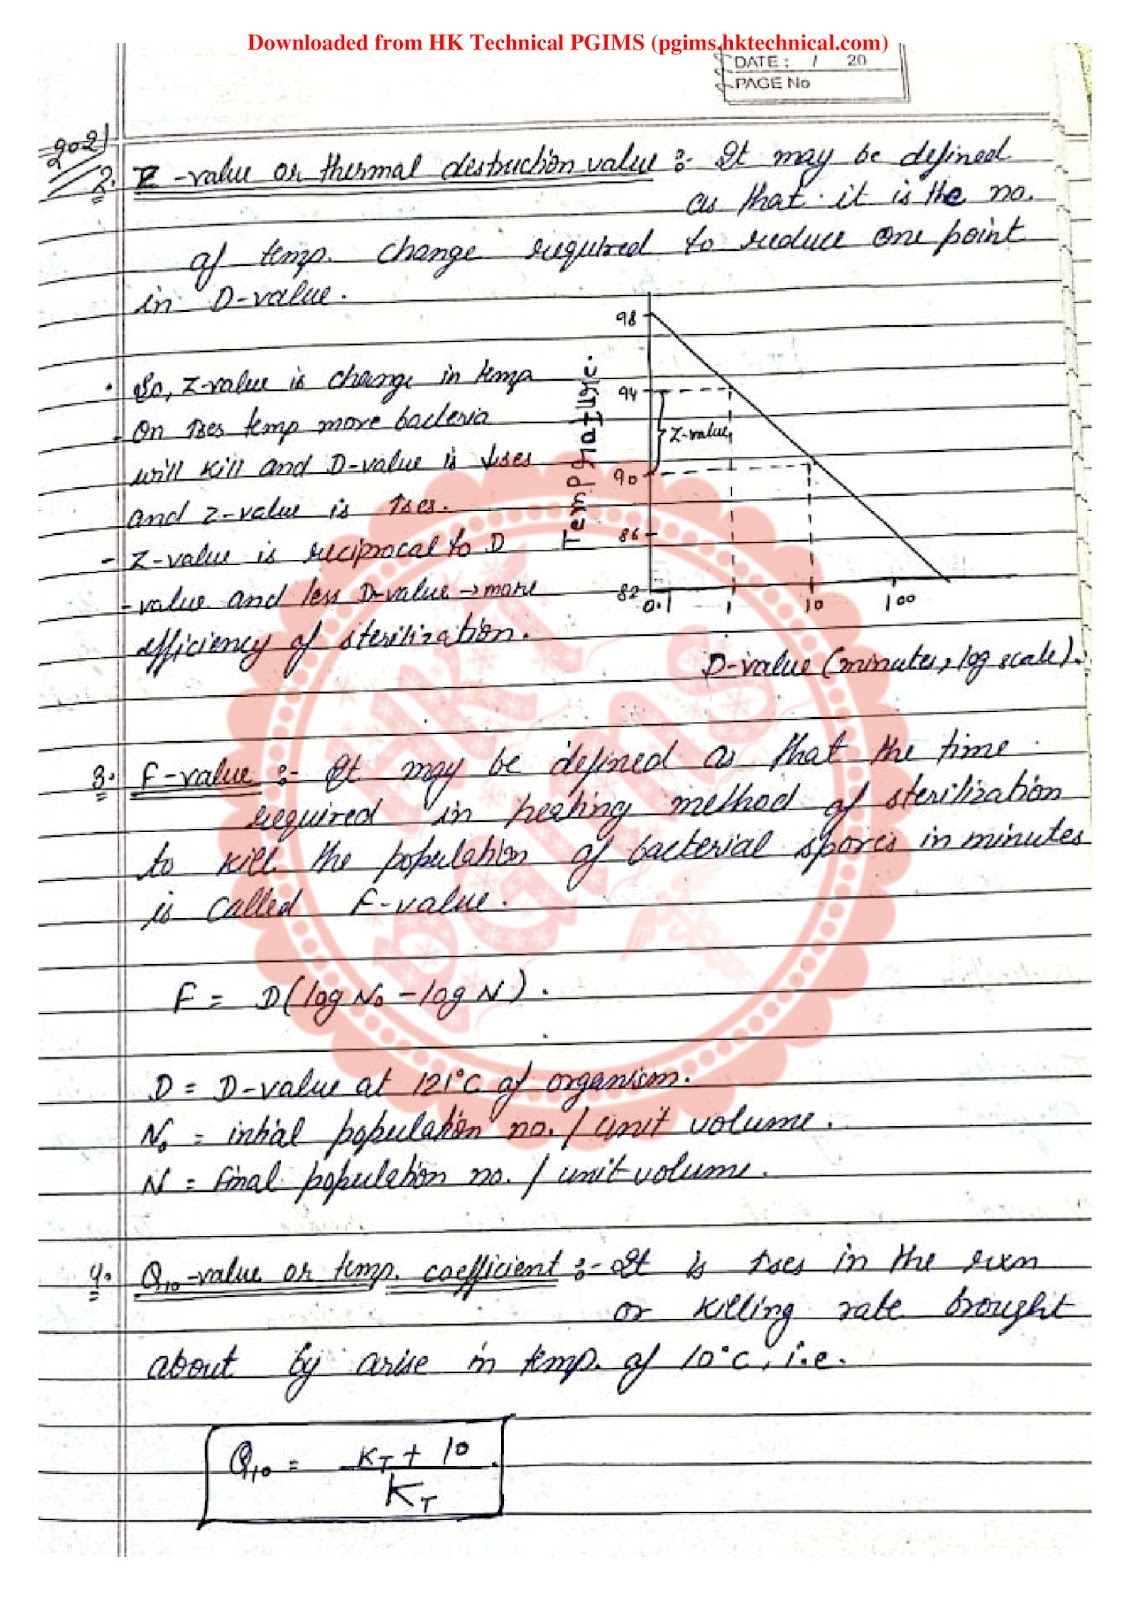 Downloaded from HK Technical PGIMS (pgims.hktechnical.com)
DATE: / 20
PAGE No
2021
2. Z-value or thermal destruction value :- It may be defined
as that it is the no.
of temp. change required to reduce one point
in D-value.
98
94
90
86
82
Temperature.
Z-value
0.1 1 10 100
D-value (minutes, log scale).
· So, Z-value is change in temp
- On ↑ses temp more bacteria
will kill and D-value is ↓ses
and z-value is ↑ses.
- Z-value is reciprocal to D
- value and less D-value → more
efficiency of sterilization.
3. F-value :- It may be defined as that the time
required in heating method of sterilization
to kill the population of bacterial spores in minutes
is called F-value.
F = D(log N₀ - log N).
D = D-value at 121°C of organism.
N₀ = initial population no. / unit volume.
N = Final population no. / unit volume.
4. Q₁₀-value or temp. coefficient :- It is ↑ses in the rxn
or killing rate brought
about by arise in temp. of 10°C, i.e.
Q₁₀ = K_T + 10
K_T
HKT
PGIMS